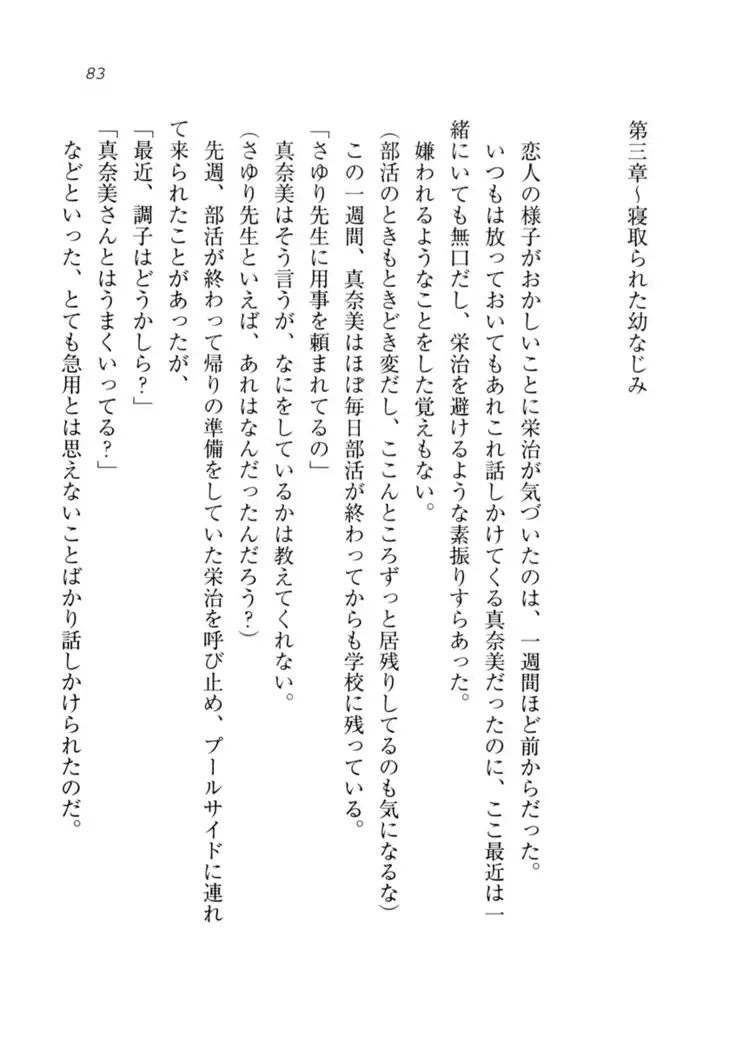 83
第三章～寝取られた幼なじみ
恋人の様子がおかしいことに栄治が気づいたのは、一週間ほど前からだった。
いつもは放っておいてもあれこれ話しかけてくる真奈美だったのに、ここ最近は一
緒にいても無口だし、栄治を避けるような素振りすらあった。
嫌われるようなことをした覚えもない。
(部活のときもときどき変だし、ここんところずっと居残りしてるのも気になるな)
この一週間、真奈美はほぼ毎日部活が終わってからも学校に残っている。
「さゆり先生に用事を頼まれてるの」
真奈美はそう言うが、なにをしているかは教えてくれない。
(さゆり先生といえば、あれはなんだったんだろう?)
先週、部活が終わって帰りの準備をしていた栄治を呼び止め、プールサイドに連れ
て来られたことがあったが、
「最近、調子はどうかしら?」
「真奈美さんとはうまくいってる?」
などといった、とても急用とは思えないことばかり話しかけられたのだ。